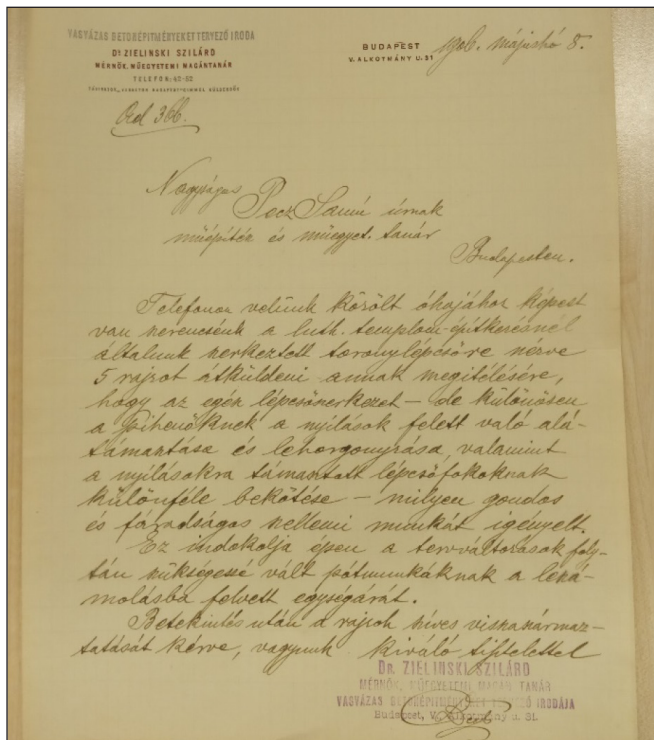 VASVÁZAS BETONÉPITMÉNYEKET TERVEZŐ IRODA
Dr. ZIELINSKI SZILÁRD
MÉRNÖK, MŰEGYETEMI MAGÁNTANÁR
TELEFON: 42-52
BUDAPEST 1906. május hó 8.
V. ALKOTMÁNY U. 31
Ad 366.
Nagyságos
Pecz Samú úrnak
műépítész és műegyet. tanár
Budapesten.
Telefonon velünk közölt óhajához képest
van szerencsénk a luth. templom-építkezésnél
általunk szerkeztett toronylépcsőre nézve
5 rajzot átküldeni annak megitélésére,
hogy az egész lépcsőszerkezet – de különösen
a pihenőknek a nyilások felett való alá-
támasztása és lehorgonyzása, valamint
a nyilásokra támasztott lépcsőfokoknak
különféle bekötése – milyen gondos
és fáradságos szellemi munkát igényelt.
Ez indokolja épen a tervváltozások foly-
tán szükségessé vált pótmunkáknak a leszá-
molásba felvett egységárát.
Betekintés után a rajzok szíves visszaszármaz-
tatását kérve, vagyunk kiváló tisztelettel
Dr. ZIELINSKI SZILÁRD
MÉRNÖK, MŰEGYETEMI MAGÁN TANÁR
VASVÁZAS BETONÉPITMÉNYEKET TERVEZŐ IRODÁJA
Budapest, V. Alkotmány u. 31.